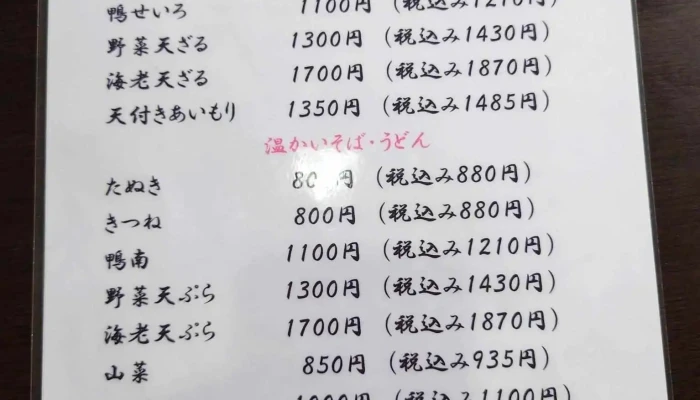 鴨せいろ 1100円 (税込み1210円)
野菜天ざる 1300円 (税込み1430円)
海老天ざる 1700円 (税込み1870円)
天付きあいもり 1350円 (税込み1485円)
温かいそば・うどん
たぬき 80 円 (税込み880円)
きつね 800円 (税込み880円)
鴨南 1100円 (税込み1210円)
野菜天ぷら 1300円 (税込み1430円)
海老天ぷら 1700円 (税込み1870円)
山菜 850円 (税込み935円)
1000円 (税込み1100円)